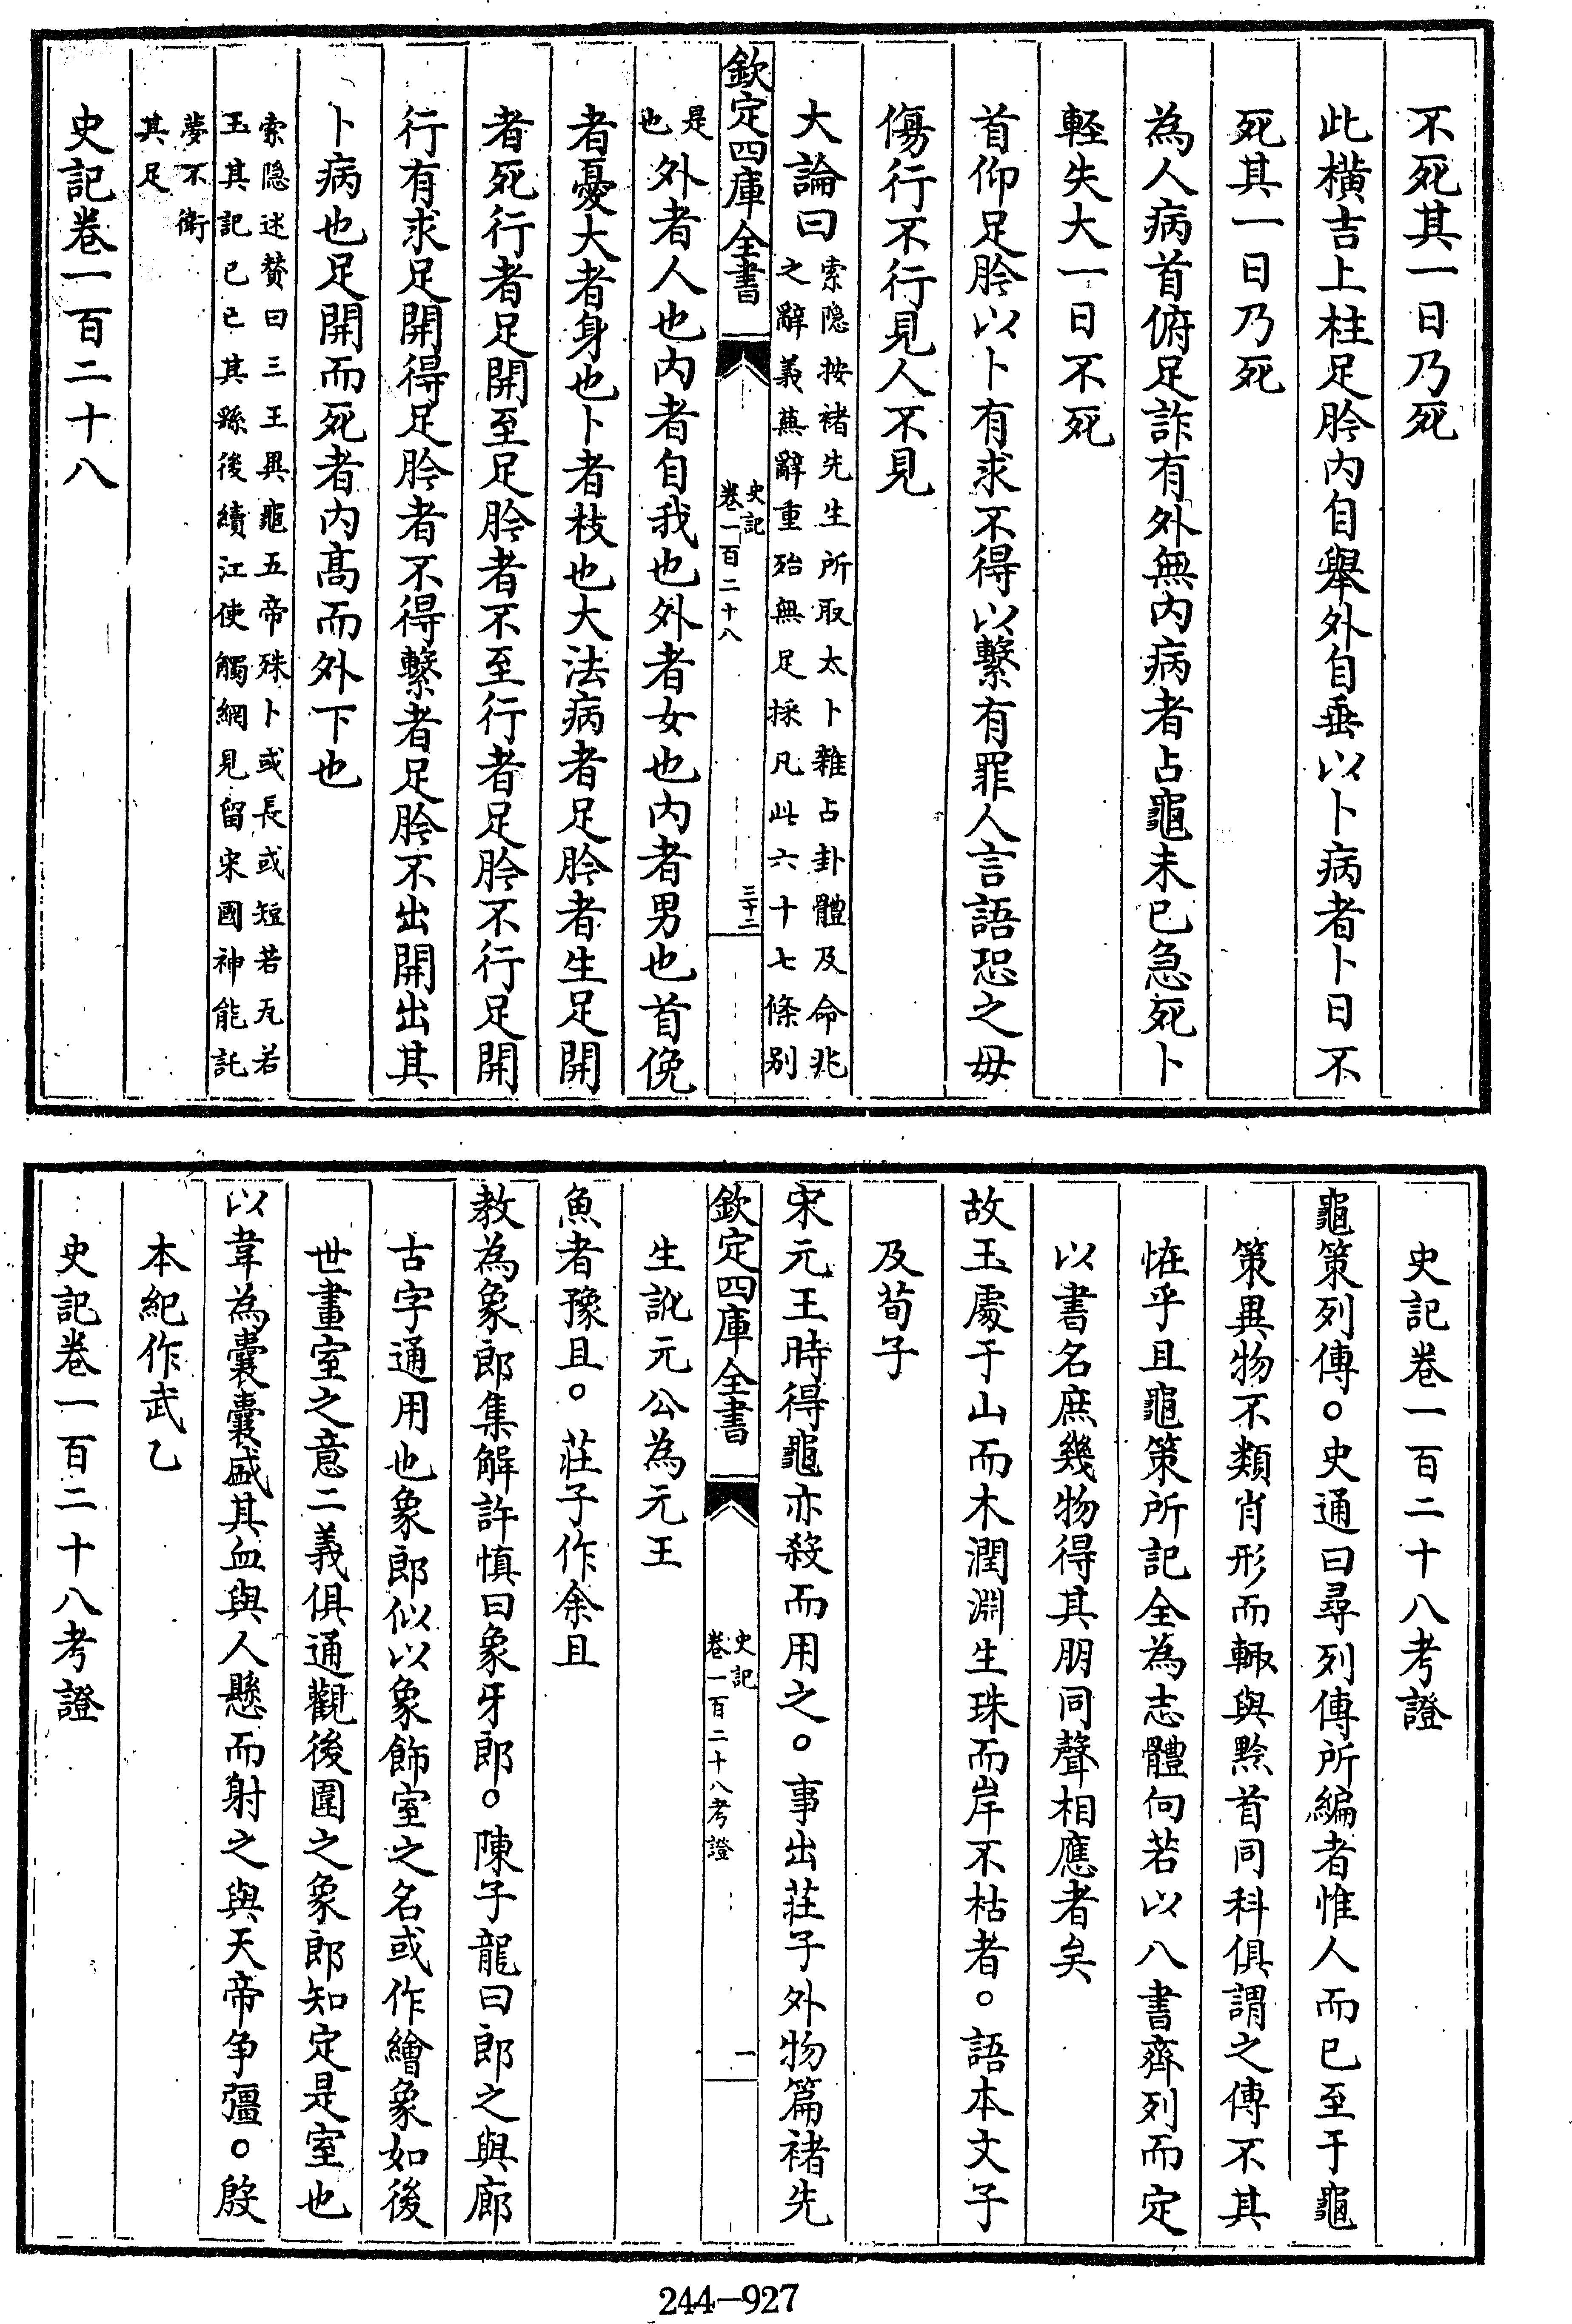 不死其一日乃死
此橫吉上柱足肣内自舉外自垂以卜病者卜日不
死其一日乃死
為人病首俯足詐有外無内病者占龜未已急死卜
輕失大一日不死
首仰足肣以卜有求不得以繫有罪人言語恐之毋
傷行不行見人不見
大論曰索隱按褚先生所取太卜雜占卦體及命兆
之辭義蕪辭重殆無足採凡此六十七條别
欽定四庫全書
史記
卷一百二十八
三十二
是
也
外者人也内者自我也外者女也内者男也首俛
者憂大者身也卜者枝也大法病者足肣者生足開
者死行者足開至足肣者不至行者足肣不行足開
行有求足開得足肣者不得繫者足肣不出開出其
卜病也足開而死者内髙而外下也
索隱述賛曰三王異龜五帝殊卜或長或短若瓦若
玉其記已亡其繇後續江使觸網見留宋國神能託
夢不衛
其足
史記卷一百二十八
史記卷一百二十八考證
龜策列傳○史通曰尋列傳所編者惟人而已至于龜
策異物不類肖形而輙與黔首同科俱謂之傳不其
恠乎且龜策所記全為志體向若以八書齊列而定
以書名庶幾物得其朋同聲相應者矣
故玉處于山而木潤淵生珠而岸不枯者○語本文子
及荀子
宋元王時得龜亦殺而用之○事出莊子外物篇褚先
欽定四庫全書
史記
卷一百二十八考證
一
生訛元公為元王
魚者豫且○莊子作余且
教為象郎集解許慎曰象牙郎○陳子龍曰郎之與廊
古字通用也象郎似以象飾室之名或作繪象如後
世畫室之意二義俱通觀後圍之象郎知定是室也
以韋為囊囊盛其血與人懸而射之與天帝争彊○殷
本紀作武乙
史記卷一百二十八考證
244-927